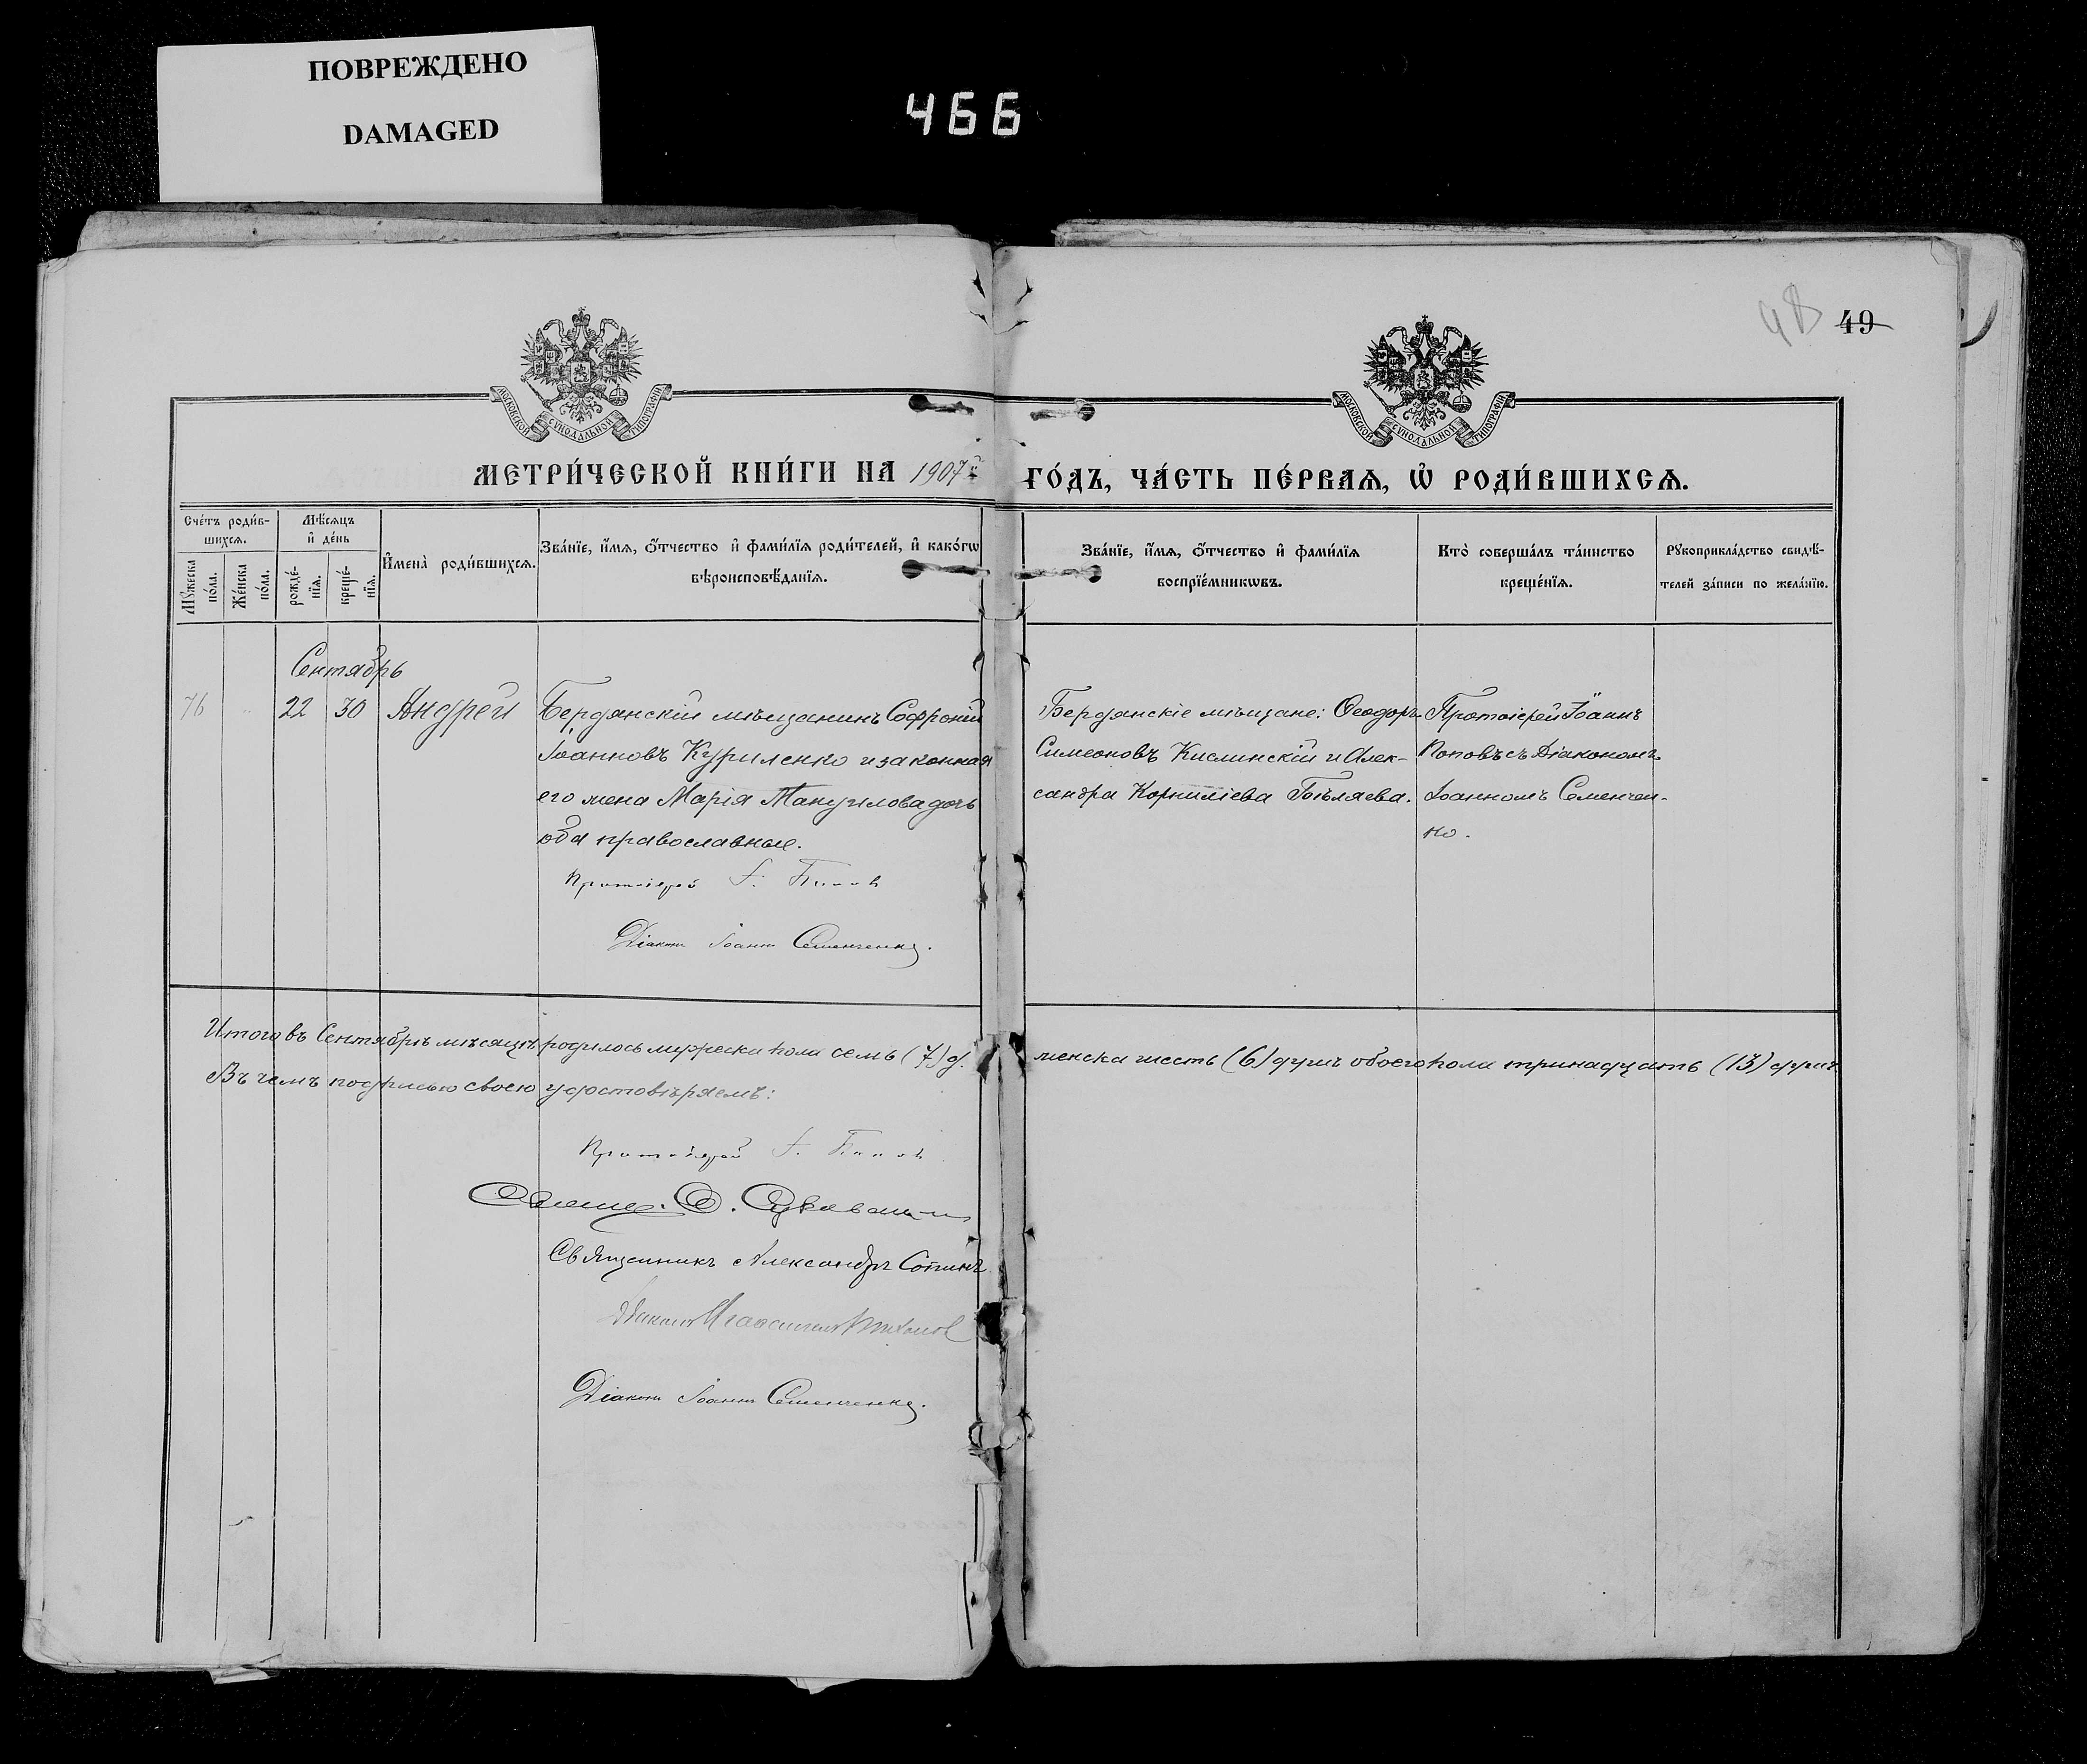 ПОВРЕЖДЕНО
DAMAGED
466
48 49
МОСКОВСКОЙ СУНОДАЛЬНОЙ ТИПОГРАФІИ
МОСКОВСКОЙ СУНОДАЛЬНОЙ ТИПОГРАФІИ
МЕТРИ́ЧЕСКОЙ КНИ́ГИ НА 1907й ГО́ДЪ, ЧА́СТЬ ПЕ́РВАѦ, Ѡ҆ РОДИ́ВШИХСѦ.
Сче́тъ роди́в-
шихсѧ.
Мꙋ́жеска по́ла.
Же́нска по́ла.
Мѣ́сѧцъ
и҆ де́нь
рожде́-
нїѧ.
креще́-
нїѧ.
И҆мена̀ роди́вшихсѧ.
Зва́нїе, и҆́мѧ, ѻ҆́тчество и҆ фами́лїѧ роди́телей, и҆ како́гѡ
вѣроисповѣ́данїѧ.
Зва́нїе, и҆́мѧ, ѻ҆́тчество и҆ фами́лїѧ
воспрїе́мникѡвъ.
Кто̀ соверша́лъ та́инство
креще́нїѧ.
Рꙋкоприкла́дство свидѣ́-
телей за́писи по жела́нїю.
Сентябрь
76 22 30 Андрей
Бердянскій мѣщанинъ Софроній
Іоанновъ Куриленко и законная
его жена Марія Мануилова дочь
оба православные.
Протоіерей І. Поповъ
Діаконъ Іоаннъ Семенченко.
Бердянскіе мѣщане: Ѳеодоръ
Симеоновъ Кислинскій и Алек-
сандра Корниліева Бѣляева.
Протоіерей Іоаннъ
Поповъ съ Діакономъ
Іоанномъ Семенчен-
ко.
Итого въ Сентябрѣ мѣсяцѣ родилось мужеска пола семь (7) д. женска шесть (6) душъ обоего пола тринадцать (13) душъ
Въ чемъ подписью своею удостовѣряемъ:
Протоіерей І. Поповъ
Священникъ Александръ
Діаконъ
Діаконъ Іоаннъ Семенченко.